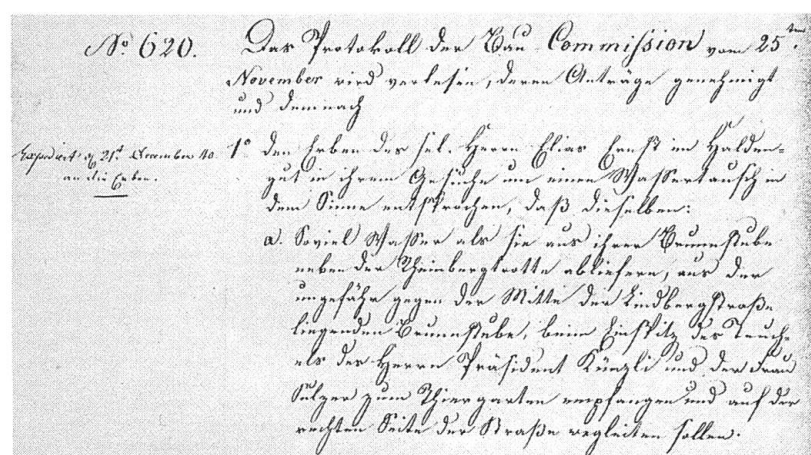 No 620.
Das Protokoll der Bau-Commission vom 25ten
November wird verlesen, deren Anträge genehmigt
und demnach
Expedirt d. 21t December 40.
an die Erben.
1o den Erben des sel. Herrn Elias Ernst im Halden-
gut in ihrem Gesuche um einen Wassertausch in
dem Sinne entsprochen, daß dieselben:
a. Soviel Wasser als sie aus ihrer Brunnstube
neben der Rheinbergtrotte abliefern, aus der
ungefähr gegen der Mitte der Lindbergstraße
liegenden Brunnstube, beim Einspitz des Teuch-
els der Herrn Präsident Künzli und der Frau
Sulzer zum Thiergarten empfangen und auf der
rechten Seite der Straße wegleiten sollen.